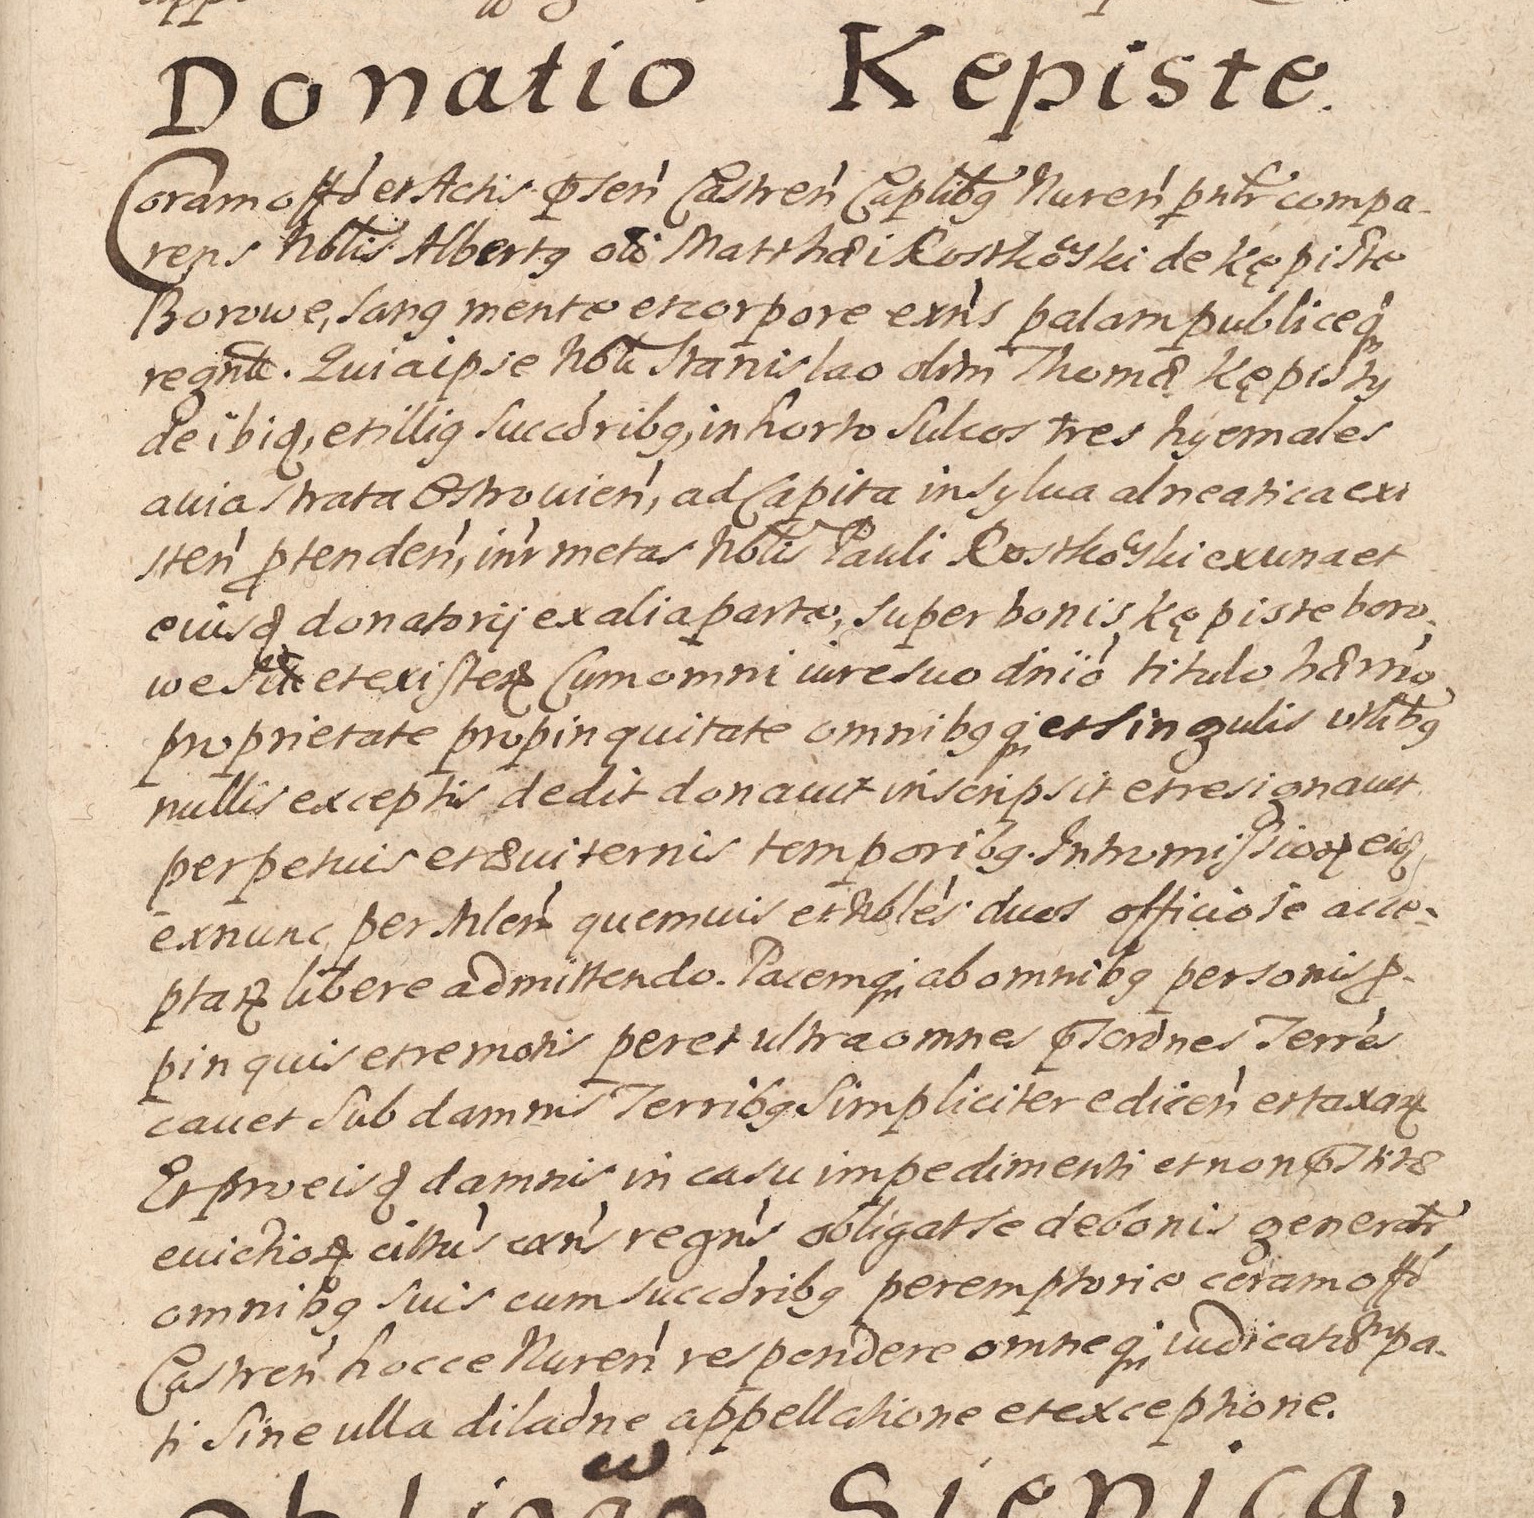 Donatio Kepiste.
Coram offò et Actis psen̄ Castren̄ Caplibq Nuren̄ pntr compa-
rens Nblis Albertq oli Matthæi Kostkowski de Kępiste
Borowe, sanq mente et corpore exn̄s palam publiceq
regntt. Quia ipse Nbli Stanislao olim Thomæ Kępisty
de ibiq, et illiq succōribq, in horto sulcos tres hyemales
a via strata Ostrouien̄, ad Capita in sylva alneatica exi
sten̄ ptenden̄, intr metas Nblis Pauli Kostkowski ex una et
eiusq donatorij ex alia parte, super bonis Kępiste boro-
we et existen Cum omni iure suo dnio titulo hærrio
proprietate propinquitate omnibq q et singulis vtlibq
nullis exceptis dedit donauit inscripsit et resignauit
perpetuis et æuiternis temporibq. Intromission eiq
ex nunc per Mlen̄ quemuis et Nbles duos officiose acce-
ptan libere admittendo. Pacemq ab omnibq personis p-
pinquis et remotis per et ultra omnes pscrōnes Terrès
cauet sub damnis Terribq simpliciter edicen̄ et taxan
Et pro eisq damnis in casu impedimenti et non pstitæ
euiction cittùs exn̄s regn̄s obligat se de bonis generatr
omnibq suis cum succōribq peremptorie coram offò
Castren̄ hocce Nuren̄ respondere omneq iudicatū pa-
ti sine ulla dilaōne appellatione et exceptione.
Sienica,